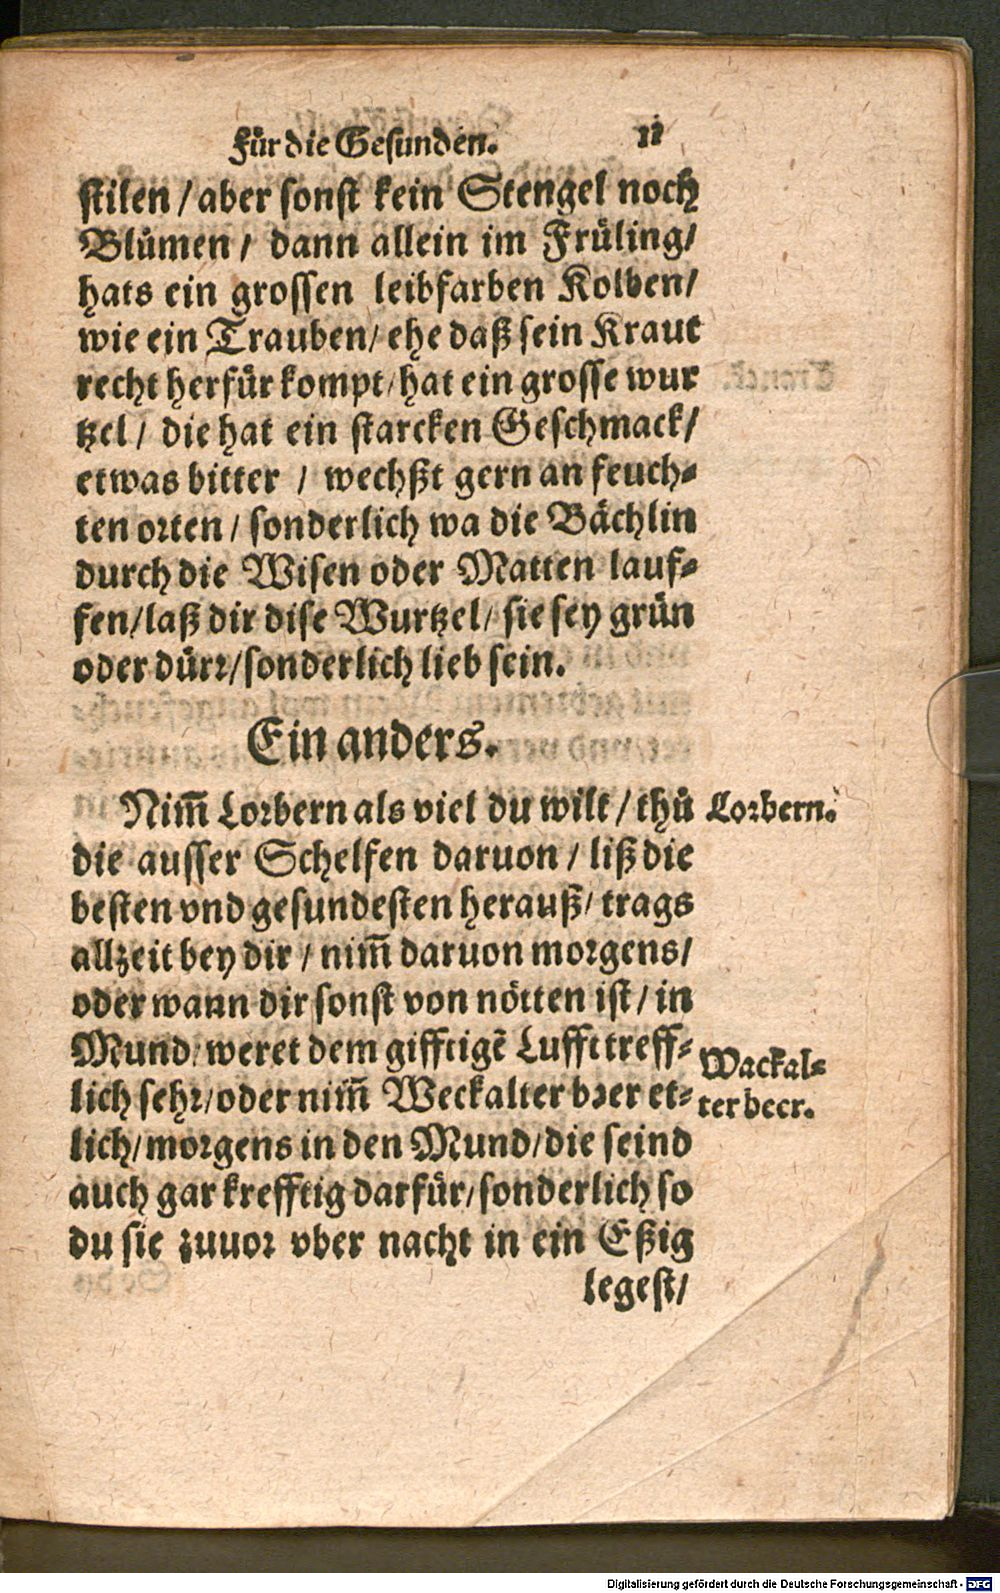 Für die Gesunden. 11
stilen / aber sonst kein Stengel noch
Blůmen / dann allein im Früling /
hats ein grossen leibfarben Kolben /
wie ein Trauben / ehe daß sein Kraut
recht herfür kompt / hat ein grosse wur
tzel / die hat ein starcken Geschmack /
etwas bitter / wechßt gern an feuch-
ten orten / sonderlich wa die Bächlin
durch die Wisen oder Matten lauf-
fen / laß dir dise Wurtzel / sie sey grün
oder dürr / sonderlich lieb sein.
Ein anders.
Nim̄ Lorbern als viel du wilt / thů
Lorbern.
die ausser Schelfen daruon / liß die
besten vnd gesundesten herauß / trags
allzeit bey dir / nim̄ daruon morgens /
oder wann dir sonst von nötten ist / in
Mund / weret dem gifftigē Lufft treff-
lich sehr / oder nim̄ Weckalter beer et-
Wackal-
ter beer.
lich / morgens in den Mund / die seind
auch gar krefftig darfür / sonderlich so
du sie zuuor vber nacht in ein Eßig
legest /
Digitalisierung gefördert durch die Deutsche Forschungsgemeinschaft - DFG